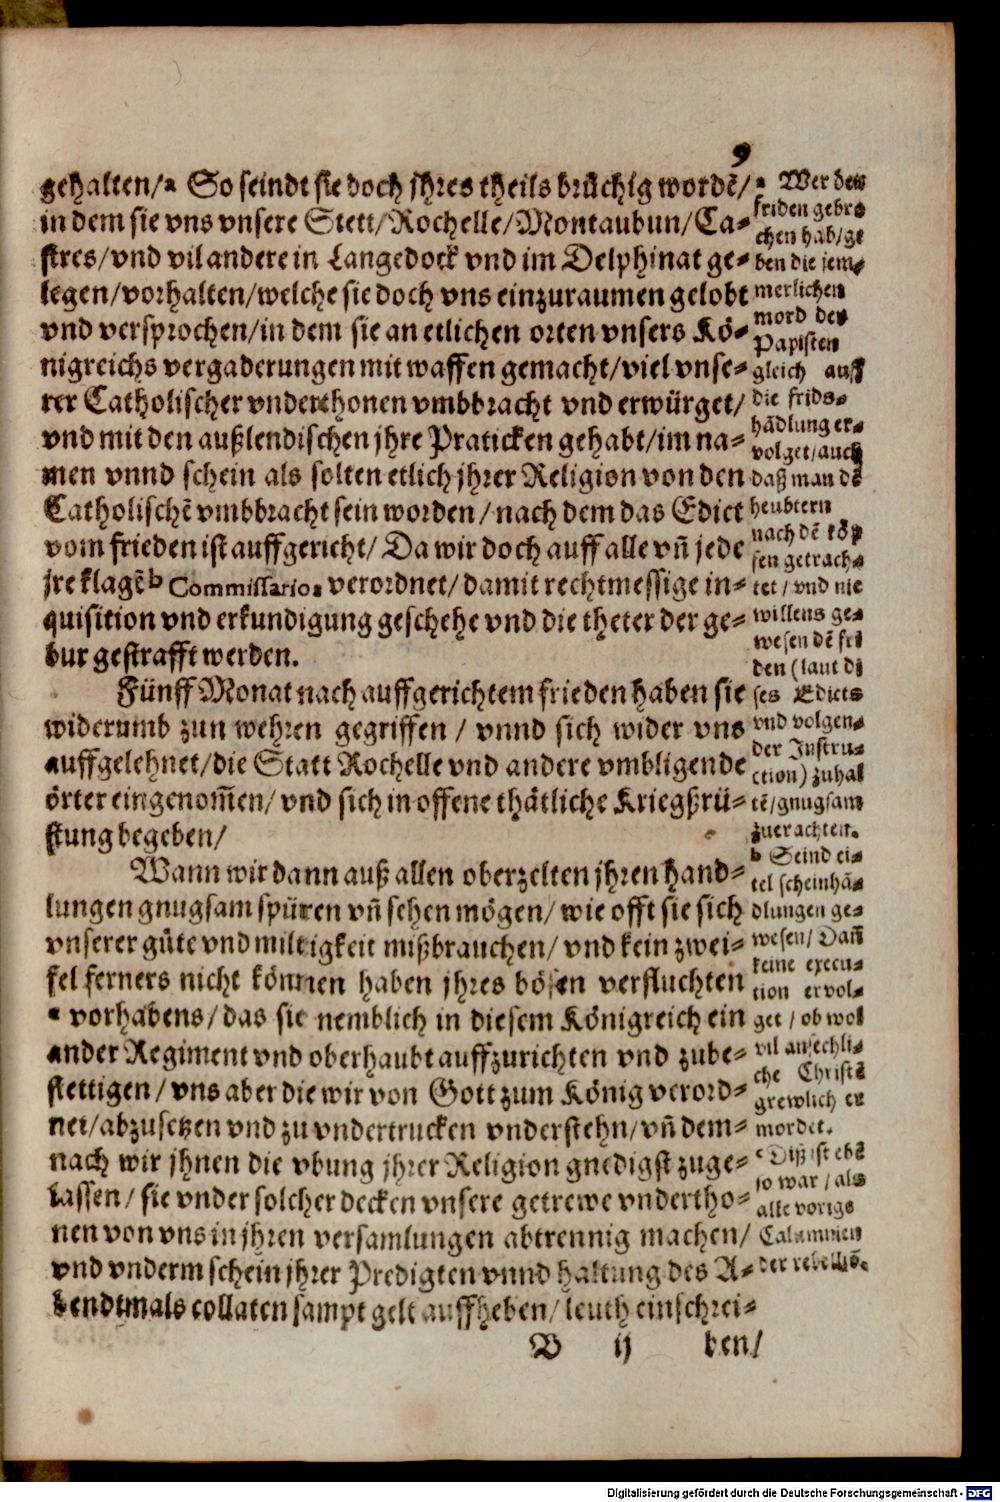 9
gehalten/a So seindt sie doch jhres theils brüchig wordē/
in dem sie vns vnsere Stett/Rochelle/Montaubun/Ca-
stres/vnd vil andere in Langedock vnd im Delphinat ge-
legen/vorhalten/welche sie doch vns einzuraumen gelobt
vnd versprochen/in dem sie an etlichen orten vnsers Kö-
nigreichs vergaderungen mit waffen gemacht/viel vnse-
rer Catholischer vnderthonen vmbbracht vnd erwürget/
vnd mit den außlendischen jhre Praticken gehabt/im na-
men vnnd schein als solten etlich jhrer Religion von den
Catholischē vmbbracht sein worden/nach dem das Edict
vom frieden ist auffgericht/ Da wir doch auff alle vn̄ jede
jre klagē b Commissarios verordnet/damit rechtmessige in-
quisition vnd erkundigung geschehe vnd die theter der ge-
bur gestrafft werden.
Fünff Monat nach auffgerichtem frieden haben sie
widerumb zun wehren gegriffen / vnnd sich wider vns
auffgelehnet/die Statt Rochelle vnd andere vmbligende
örter eingenom̄en/ vnd sich in offene thätliche Kriegßrü-
stung begeben/
Wann wir dann auß allen oberzelten jhren hand-
lungen gnugsam spüren vn̄ sehen mögen/ wie offt sie sich
vnserer güte vnd miltigkeit mißbrauchen/ vnd kein zwei-
fel ferners nicht können haben jhres bösen verfluchten
c vorhabens/das sie nemblich in diesem Königreich ein
ander Regiment vnd oberhaubt auffzurichten vnd zube-
stettigen/ vns aber die wir von Gott zum König verord-
net/abzusetzen vnd zu vndertrucken vnderstehn/vn̄ dem-
nach wir jhnen die vbung jhrer Religion gnedigst zuge-
lassen/ sie vnder solcher decken vnsere getrewe vndertho-
nen von vns in jhren versamlungen abtrennig machen/
vnd vnderm schein jhrer Predigten vnnd haltung des A-
bendtmals collaten sampt gelt auffheben/ leuth einschrei-
B ij ben/
a Wer den
friden gebro
chen hab/ge
ben die jem-
merlichen
mord der
Papisten
gleich auff
die frids-
hādlung er-
volget/auch
daß man dē
heubtern
nach dē köp
fen getrach-
tet / vnd nie
willens ge-
wesen dē fri
den (laut di
ses Edicts
vnd volgen-
der Instru-
ction) zuhal
tē/gnugsam
zuerachten.
b Seind ei-
tel scheinhā-
dlungen ge-
wesen/ Dan̄
keine execu-
tion ervol-
get / ob wol
vil ansechli-
che Christē
grewlich er
mordet.
c Diß ist ebē
so war / als
alle vorige
Calumnien
der rebelliō.
Digitalisierung gefördert durch die Deutsche Forschungsgemeinschaft - DFG